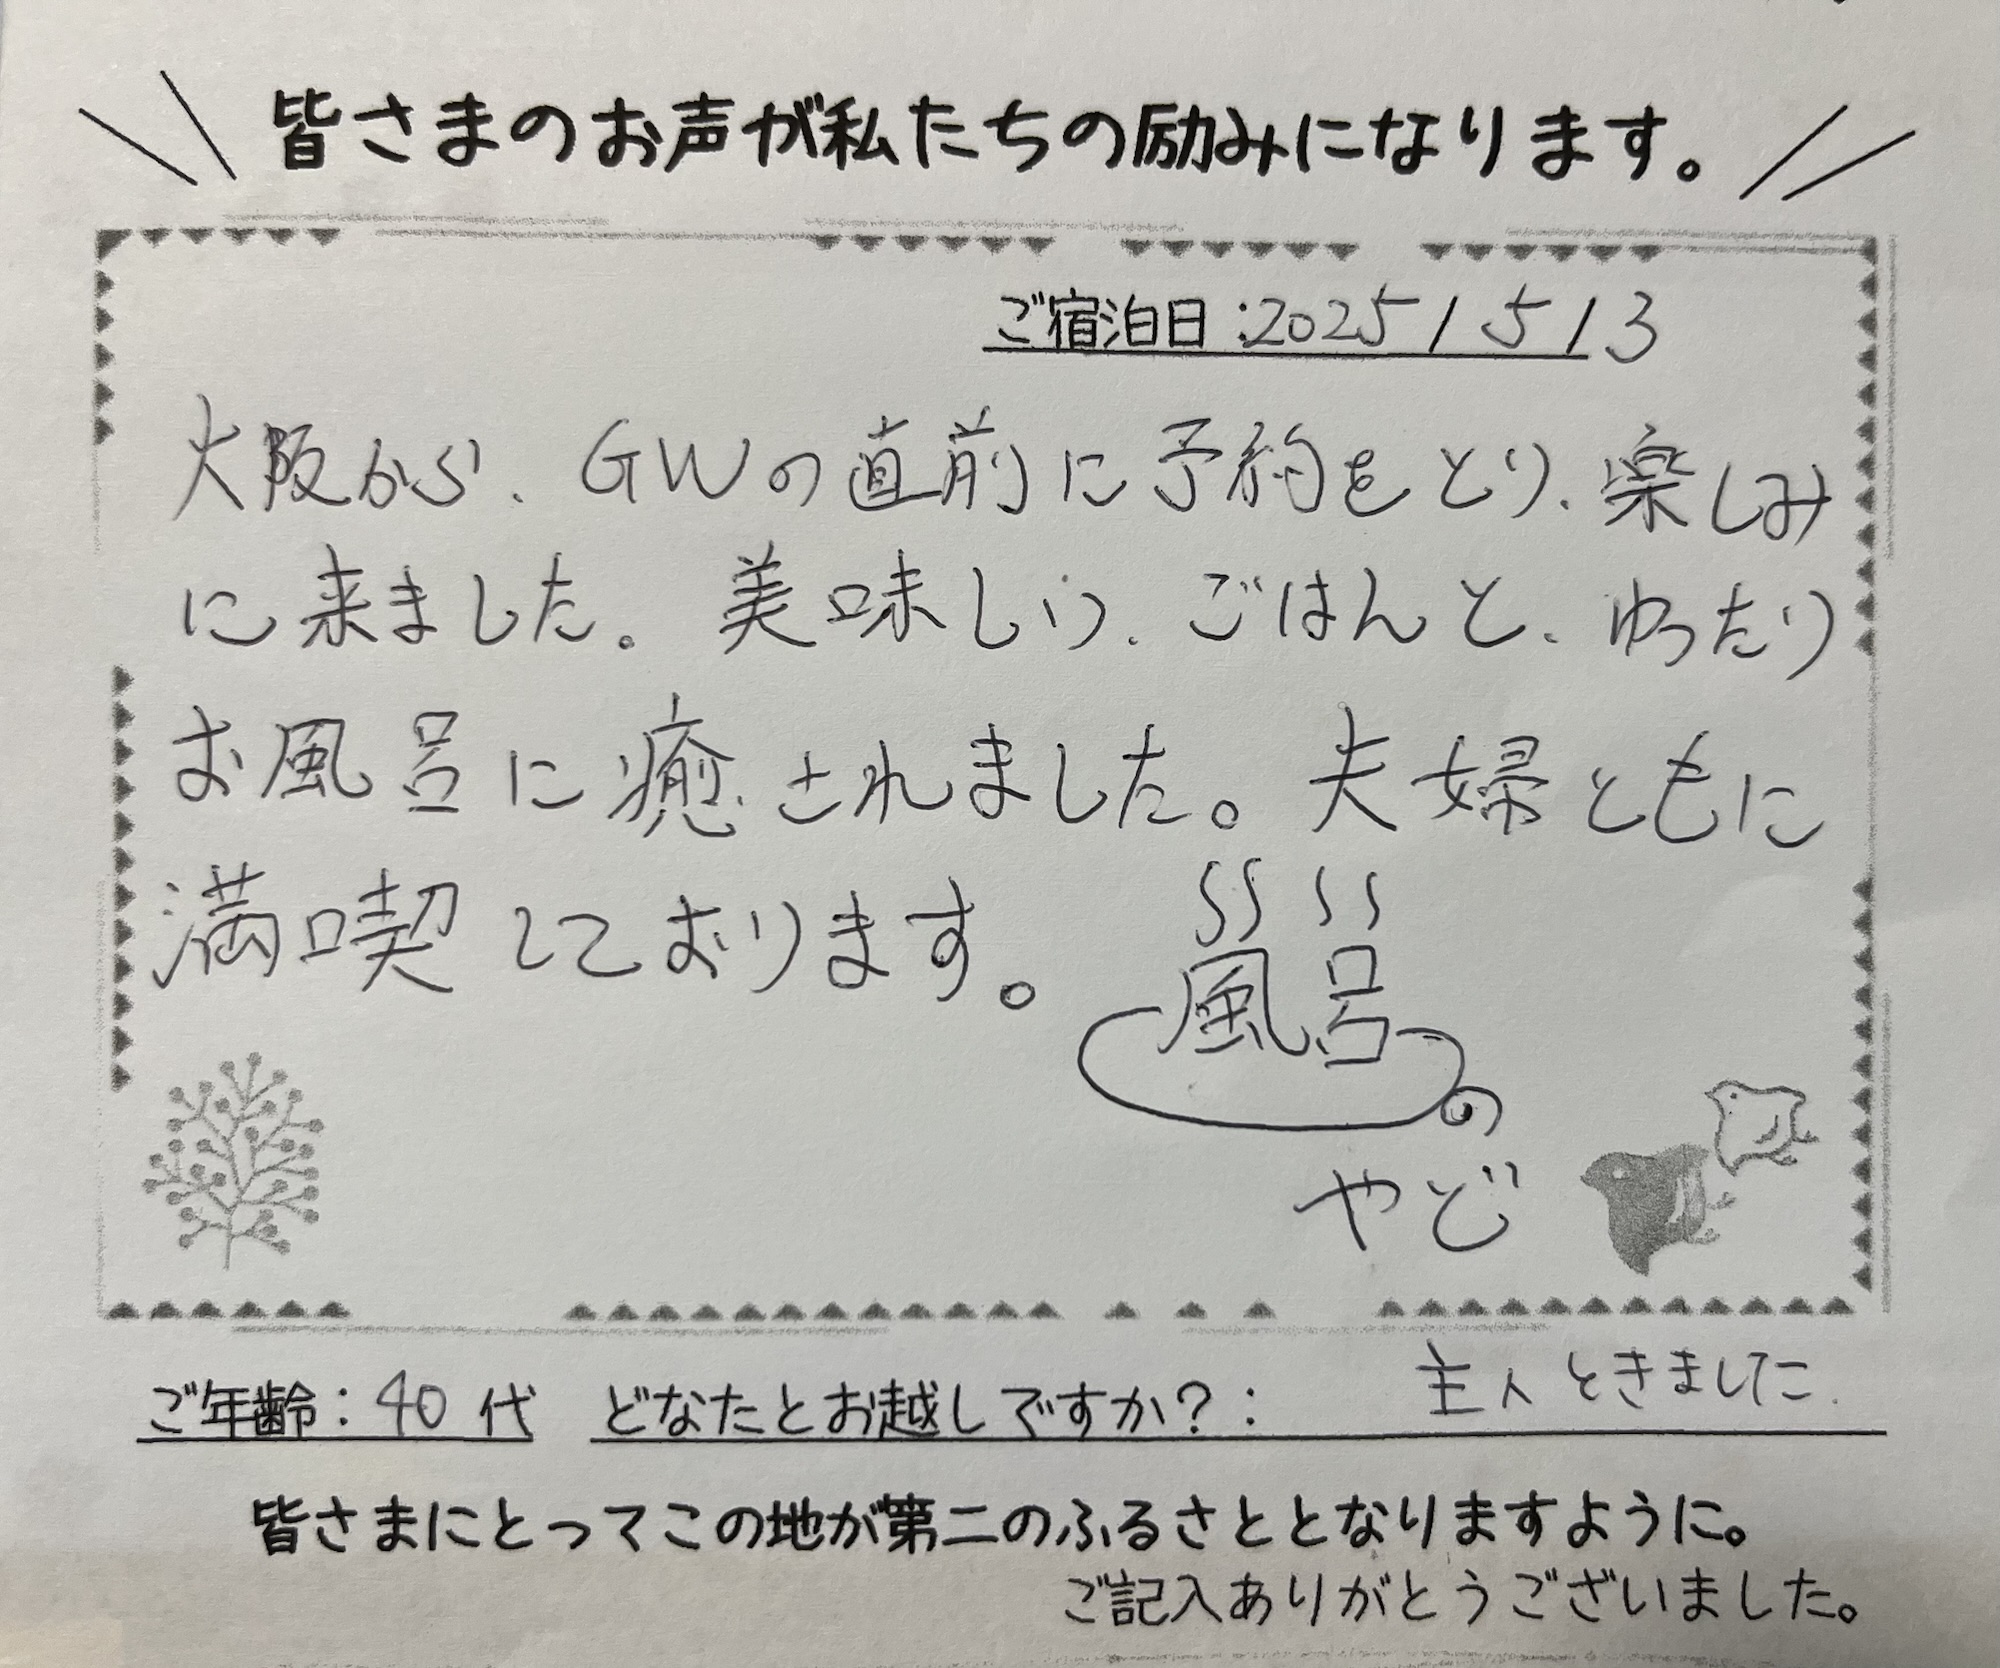 皆さまのお声が私たちの励みになります。
ご宿泊日:2025/5/3
大阪から、GWの直前に予約をとり、楽しみ
に来ました。美味しい、ごはんと、ゆったり
お風呂に癒されました。夫婦ともに
満喫しております。
風呂の
やど
ご年齢:40代 どなたとお越しですか?: 主人ときました.
皆さまにとってこの地が第二のふるさととなりますように。
ご記入ありがとうございました。